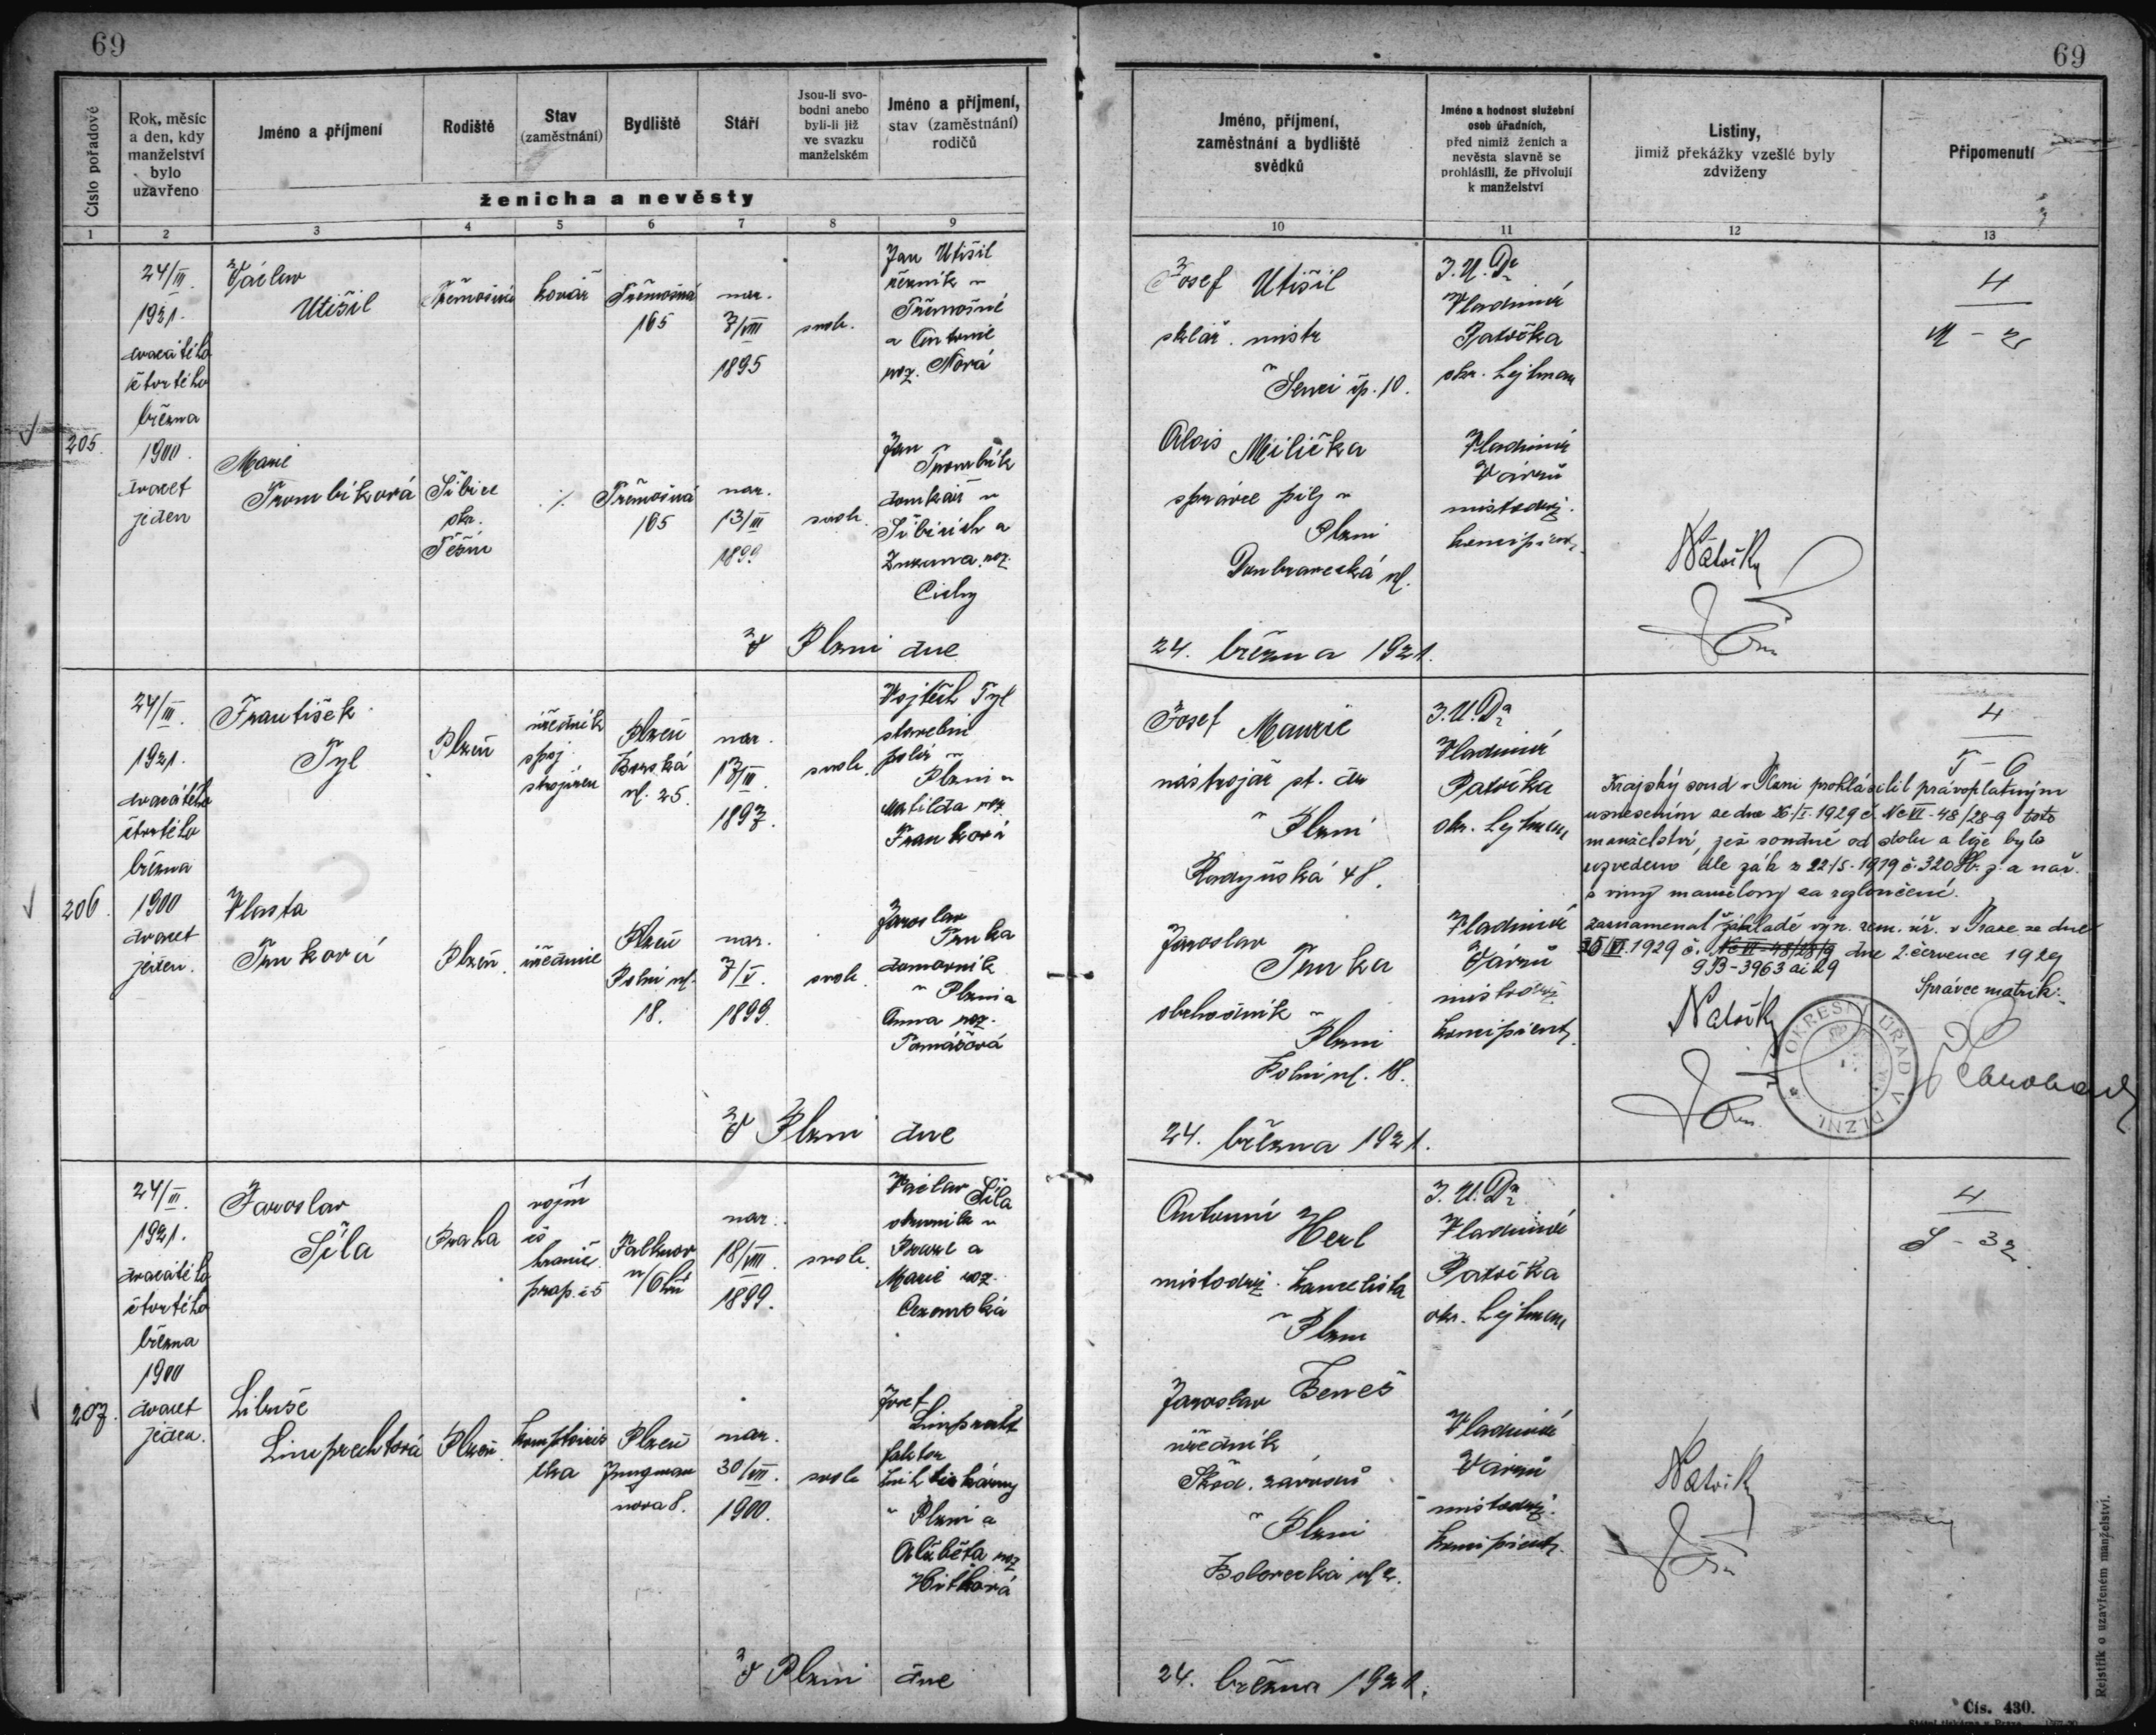 69
69
Číslo pořadové
Rok, měsíc
a den, kdy
manželství
bylo
uzavřeno
Jméno a příjmení
Rodiště
Stav
(zaměstnání)
Bydliště
Stáří
Jsou-li svo-
bodni anebo
byli-li již
ve svazku
manželském
Jméno a příjmení,
stav (zaměstnání)
rodičů
ženicha a nevěsty
Jméno, příjmení,
zaměstnání a bydliště
svědků
Jméno a hodnost služební
osob úřadních,
před nimiž ženich a
nevěsta slavně se
prohlásili, že přivolují
k manželství
Listiny,
jimiž překážky vzešlé byly
zdviženy
Připomenutí
1 2 3 4 5 6 7 8 9 10 11 12 13
205.
24/III.
1921.
dvacátého
čtvrtého
března
1900
dvacet
jeden
Václav
Utišil
Třemošná
kovář
Třemošná
165
nar.
7/VIII
1895
svob.
Jan Utišil
řezník v
Třemošné
a Antonie
roz. Nová
Marie
Trombiková
Šibice
okr.
Těšín
./.
Třemošná
165
nar.
13/III
1899
svob.
Jan
Trombik
domkář v
Šibicích a
Zuzanna roz.
Cichy
V Plzni dne
Josef Utišil
sklář. mistr
v Senci čp. 10.
Alois Milička
správce pily v
Plzni
Doubravecká ul.
J.U.Dr
Vladimír
Patočka
okr. hejtman
Vladimír
Vávrů
místodrž.
koncipient
4
U - 2
24. března 1921.
206.
24/III.
1921.
dvacátého
čtvrtého
března
1900
dvacet
jeden.
František
Tyl
Plzeň
úředník
spoj.
strojíren
Plzeň
Borská
ul. 25.
nar.
17/III.
1897.
svob.
Vojtěch Tyl
stavební
polír v
Plzni a
Matilda roz.
Franková
Vlasta
Trnková
Plzeň.
úřednice
Plzeň
Polní ul.
18.
nar.
7/V.
1899.
svob.
Jaroslav
Trnka
domovník
v Plzni a
Anna roz.
Tomášová
V Plzni dne
Josef Mauric
nástrojář st. dr.
v Plzni
Radyňská 48.
Jaroslav
Trnka
obchodník v
Plzni
Polní ul. 18.
J.U.Dr
Vladimír
Patočka
okr. hejtman
Vladimír
Vávrů
místodrž.
koncipient
4
T - 6
Krajský soud v Plzni prohlásil právoplatným
usnesením ze dne 26/I. 1929 č. Nc VI - 48/28-9 toto
manželství, jež soudně od stolu a lože bylo
rozvedeno dle zák. z 22/5. 1919 č. 320 Sb. z. a nař.
z viny manželovy za rozloučené.
zaznamenal základě výn. zem. úř. v Praze ze dne
25/VI. 1929 č. Nc VI - 48/28/9 dne 2. července 1929
9 B - 3963 ai 29
Správce matrik:
OKRESNÍ ÚŘAD V PLZNI.
24. března 1921.
207.
24/III.
1921.
dvacátého
čtvrtého
března
1900
dvacet
jeden.
Jaroslav
Šíla
Praha
vojín
čs
hranič.
prap. č 5
Falknov
n/Ohří
nar.
18/VIII.
1899.
svob.
Václav Šíla
v
Praze a
Marie roz.
Libuše
Limprechtová
Plzeň.
komptoiris
tka
Plzeň
Jungman
nova 8.
nar.
30/VII.
1900.
svob
Josef
Limprecht
faktor
knihtiskárny
v Plzni a
Alžběta roz
Hitková
V Plzni dne
Antonín
Herl
místodrž. kancelista
v Plzni
Jaroslav Beneš
úředník
Škod. závodů
v Plzni
J.U.Dr
Vladimír
Patočka
okr. hejtman
Vladimír
Vávrů
místodrž.
koncipient
4
S - 32.
24. března 1921.
Rejstřík o uzavřeném manželství.
Čís. 430.